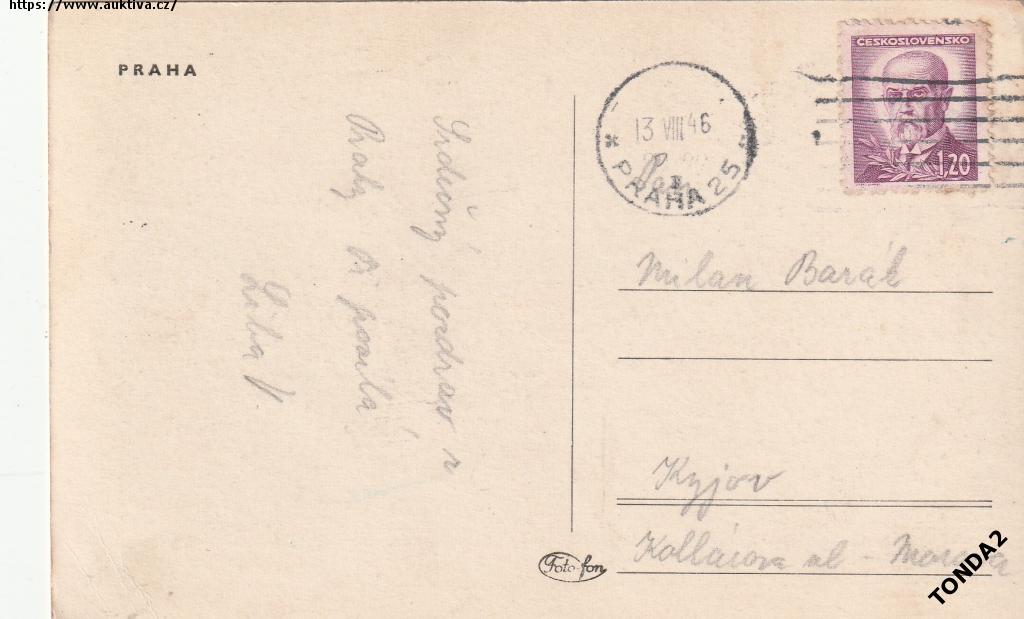 https://www.auktiva.cz/
PRAHA
Srdečný pozdrav z
Prahy Ti posílá
Liba V.
ČESKOSLOVENSKO
1,20
13 VIII 46
PRAHA 25
Pan
Milan Barák
Kyjov
Kollárova ul - Morava
Foto-fon
TONDA2